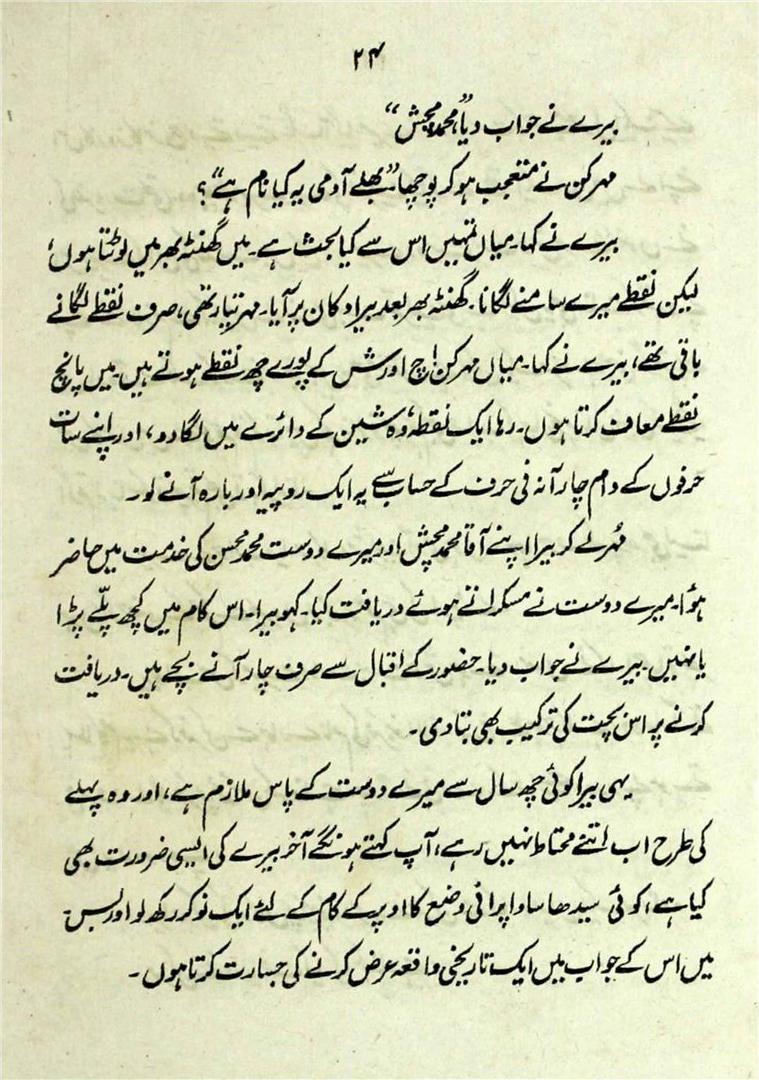 ۲۴
بیرے نے جواب دیا، ”محمد مچش“
مہرکن نے متعجب ہو کر پوچھا ”بھلے آدمی یہ کیا نام ہے“؟
بیرے نے کہا۔ میاں تمہیں اس سے کیا بحث ہے۔ میں گھنٹہ بھر میں لوٹتا ہوں،
لیکن نقطے میرے سامنے لگانا۔ گھنٹہ بھر بعد بیرا دکان پر آیا۔ مہر تیار تھی، صرف نقطے لگانے
باقی تھے، بیرے نے کہا۔ میاں مہرکن! چ اور ش کے پورے چھ نقطے ہوتے ہیں۔ میں پانچ
نقطے معاف کرتا ہوں۔ رہا ایک نقطہ، وہ شین کے دائرے میں لگا دو، اور اپنے سات
حرفوں کے دام چار آنہ فی حرف کے حساب سے یہ ایک روپیہ اور بارہ آنے لو۔
مُہر لے کر بیرا اپنے آقا محمد مچش اور میرے دوست محمد محسن کی خدمت میں حاضر
ہوُا۔ میرے دوست نے مسکراتے ہوئے دریافت کیا۔ کہو بیرا۔ اس کام میں کچھ پلّے پڑا
یا نہیں۔ بیرے نے جواب دیا۔ حضور کے اقبال سے صرف چار آنے بچے ہیں۔ دریافت
کرنے پر اس بچت کی ترکیب بھی بتا دی۔
یہی بیرا کوئی چھ سال سے میرے دوست کے پاس ملازم ہے، اور وہ پہلے
کی طرح اب اتنے محتاط نہیں رہے، آپ کہتے ہونگے آخر بیرے کی ایسی ضرورت بھی
کیا ہے، کوئی سیدھا سادا پرانی وضع کا اوپر کے کام کے لئے ایک نوکر رکھ لو اور بس۔
میں اس کے جواب میں ایک تاریخی واقعہ عرض کرنے کی جسارت کرتا ہوں۔